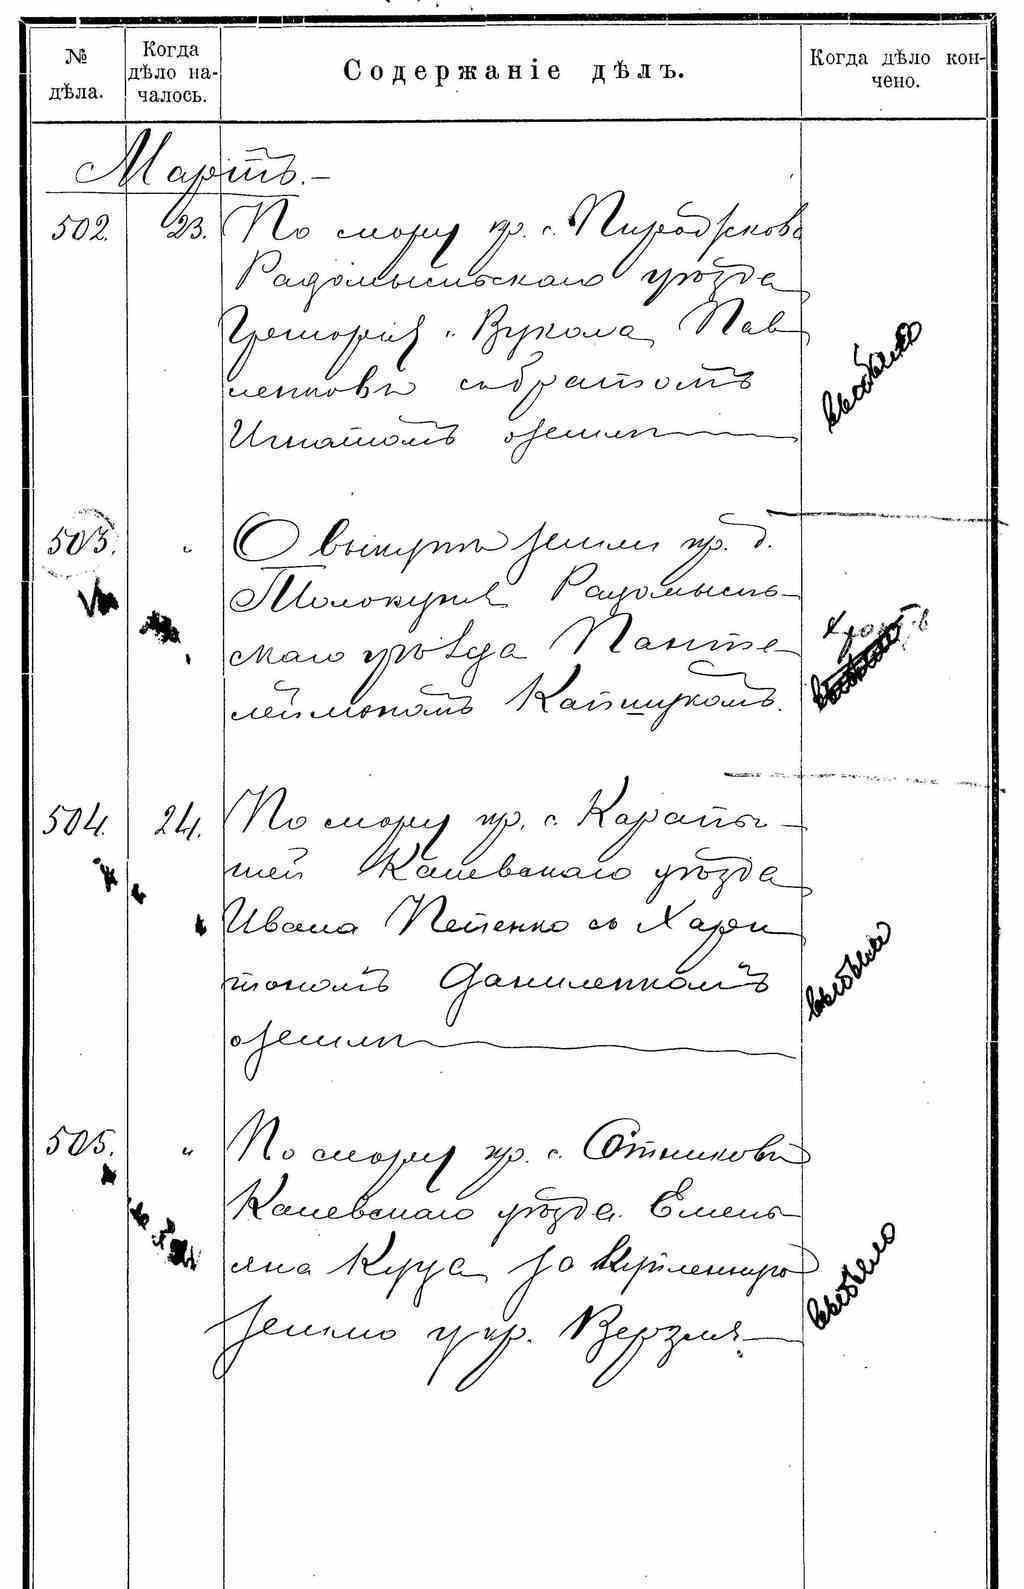 № дѣла.
Когда дѣло на-
чалось.
Содержаніе дѣлъ.
Когда дѣло кон-
чено.
Мартъ.-
502. 23. По спору кр. с.
Радомысльскаго уѣзда
Григорія и Вукола Пав
ленковы съ братомъ
Игнатомъ о землѣ
выбыло
503. " О выкупѣ земли кр. д.
Радомысль-
скаго уѣзда Панте-
леймономъ
504. 24. По спору кр. с. Карапы-
шей Каневскаго уѣзда
Ивана съ Хари
тономъ Даниленкомъ
о землѣ
выбыло
505. " По спору кр. с. Сотниковъ
Каневскаго уѣзда Емель-
яна Куца за купленную
землю у кр. Верзля
выбыло